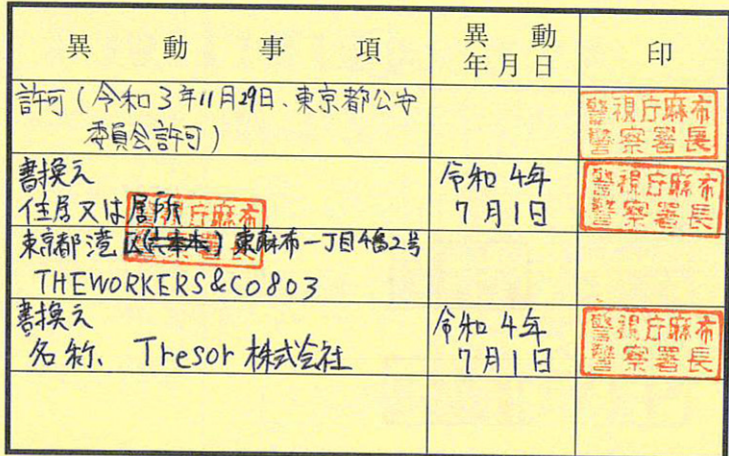 異動事項
異動
年月日
印
許可(令和3年11月29日、東京都公安
委員会許可)
警視庁麻布
警察署長
書換え
住居又は居所
令和4年
7月1日
警視庁麻布
警察署長
警視庁麻布
東京都港区(六本木)東麻布一丁目4番2号
THEWORKERS&CO803
書換え
名称、Tresor株式会社
令和4年
7月1日
警視庁麻布
警察署長